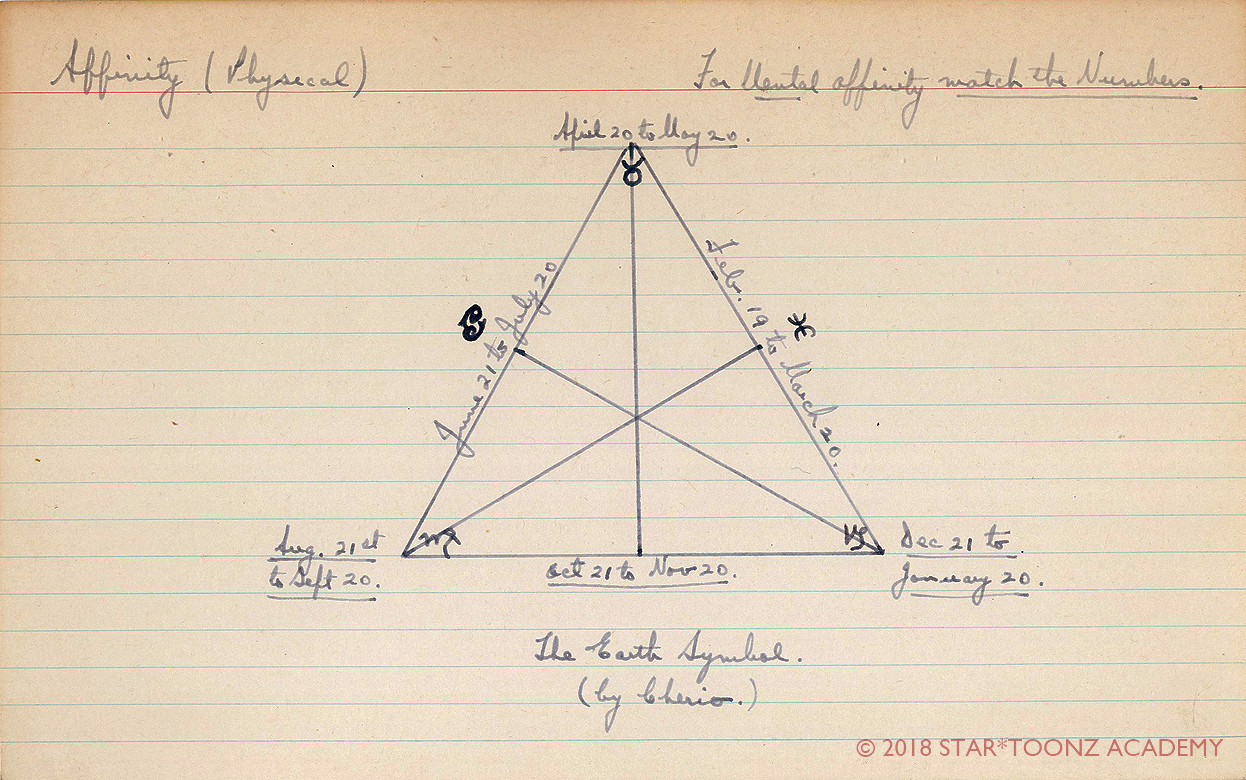 Affinity (Physical)
For Mental affinity match the Numbers.
April 20 to May 20.
♉
Feb. 19 to March 20.
♓
June 21 to July 20
♋
♍
♑
Aug. 21st
to Sept 20.
Oct 21 to Nov 20.
Dec 21 to
January 20.
The Earth Symbol.
(by Cherio.)
© 2018 STAR*TOONZ ACADEMY